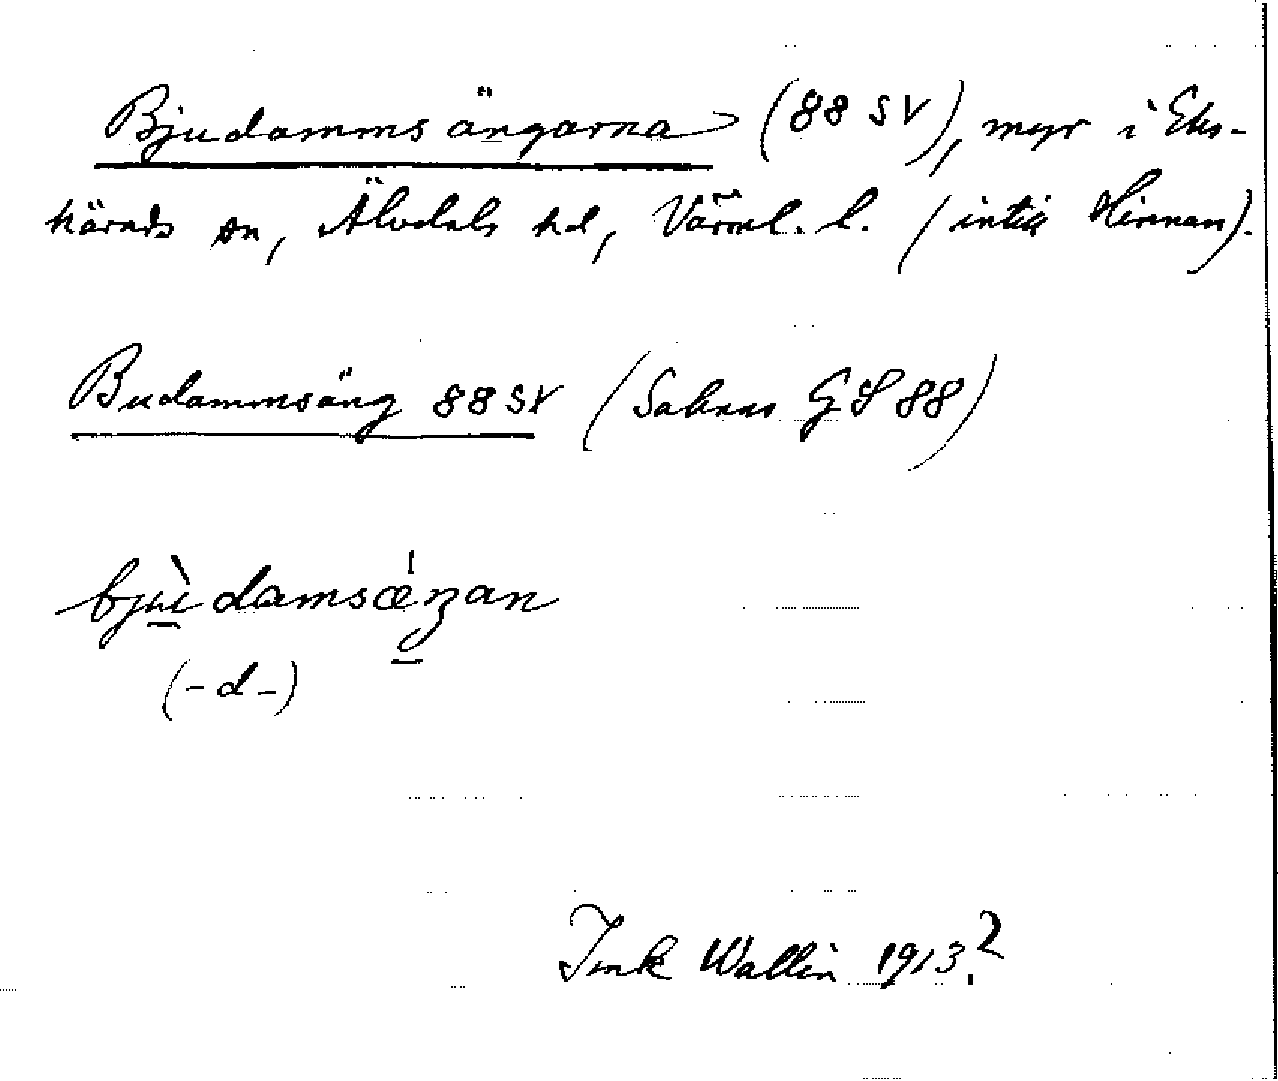 Bjudammsängarna (88 SV), myr i Eks-
härads sn, Älvdals hd, Värml. l. (intill Hinnan).
Budammsäng 88 SV (Saknas GS 88)
bjùdamsǽŋan
(-d-)
Jmk Wallin 1913?